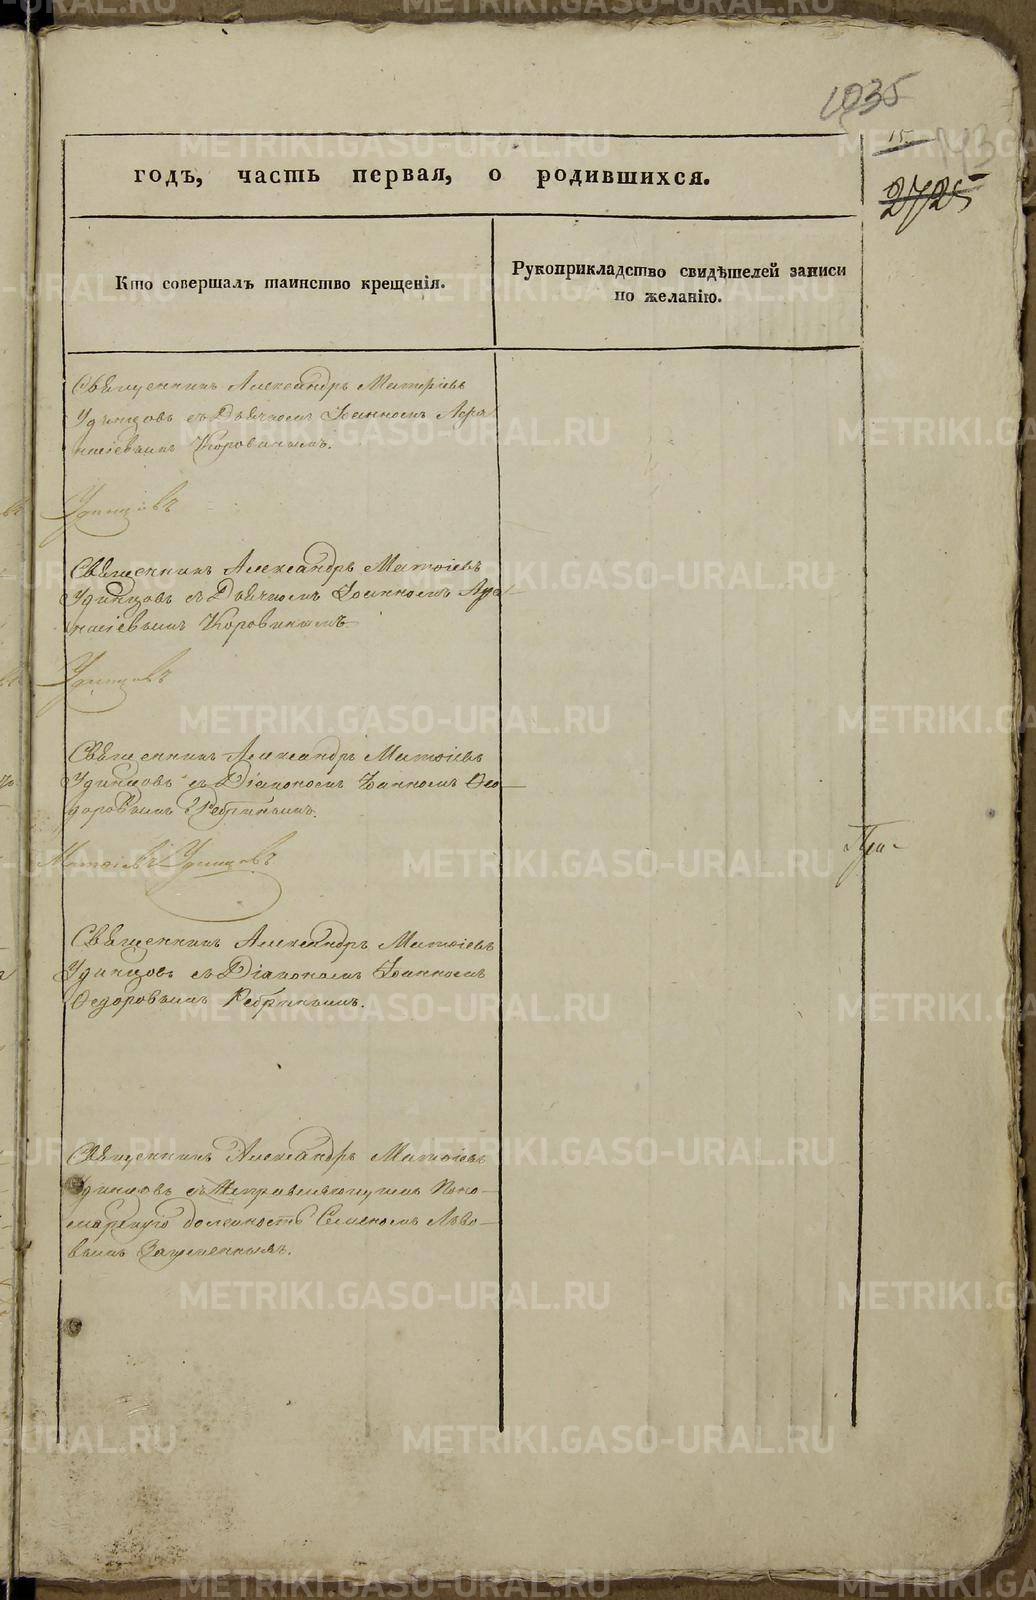 1035
15.
143
2725
годъ, часть первая, о родившихся.
Кто совершалъ таинство крещенія.
Рукоприкладство свидѣтелей записи
по желанію.
Священникъ Александръ Матѳіевъ
Удинцовъ съ Дьячкомъ Іоанномъ Афа
насіевымъ Коровинымъ.
Удинцовъ
Священникъ Александръ Матѳіевъ
Удинцовъ съ Дьячкомъ Іоанномъ Афа-
насіевымъ Коровинымъ
Удинцовъ
Священникъ Александръ Матѳіевъ
Удинцовъ съ Діакономъ Іоанномъ Ѳео-
доровымъ Ребринымъ.
Матѳіевъ Удинцовъ
При-
Священникъ Александръ Матѳіевъ
Удинцовъ съ Діакономъ Іоанномъ
Ѳедоровымъ Ребринымъ.
Священникъ Александръ Матѳіевъ
Удинцовъ съ Исправляющимъ Поно-
марскую должность Семеномъ Льво-
вымъ
METRIKI.GASO-URAL.RU